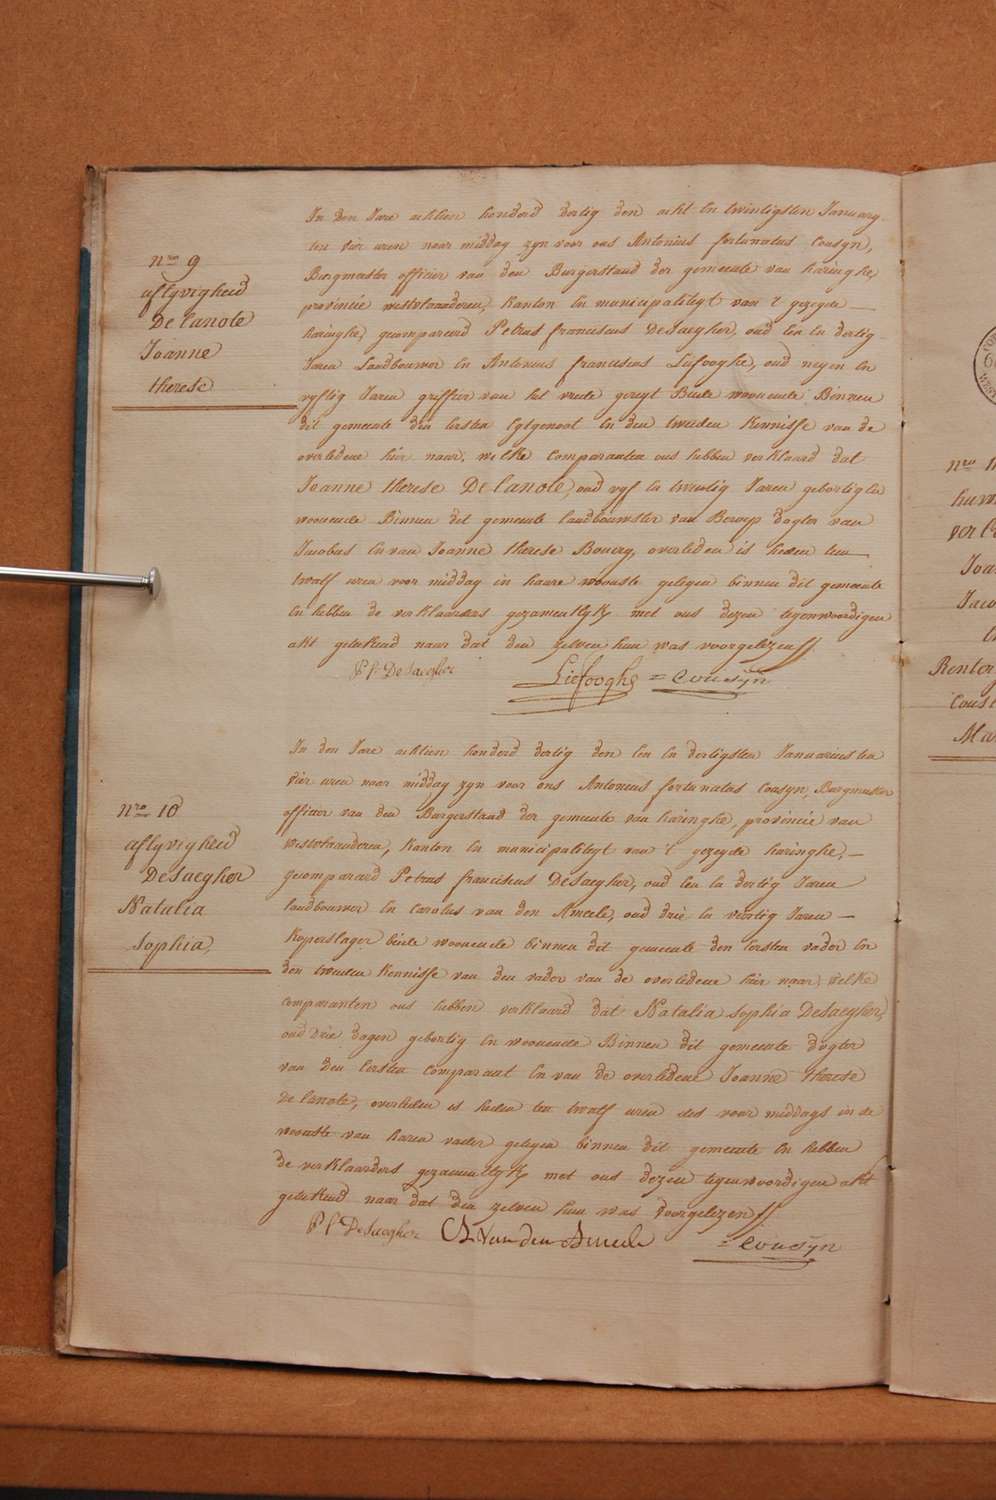 nro 9
aflyvigheid
De lanote
Joanne
therese
In den Jare achtien honderd dertig den acht En twintigsten January
ten vier uren naer middag zyn voor ons Antonius fortunatus Cousyn,
Burgmeester officier van den Burgerstand der gemeente van haringhe,
provincie westvlaanderen, Kanton En municipalityt van 't gezegde
haringhe, gecompareerd Petrus franciscus DeSaegher, oud Een En dertig
Jaren Landbouwer En Antonius franciscus Liefooghe, oud negen En
vyftig Jaren griffier van het vrede geregt Beide woonende Binnen
dit gemeente den Eersten Egtgenoot En den tweeden Kennisse van de
overledene hier naer, welke comparanten ons hebben verklaard dat
Joanne therese De lanote, oud vyf En twintig Jaren gebortig En
woonende Binnen dit gemeente landbouwster van Beroep dogter van
Jacobus En van Joanne therese Bouery, overleden is heden ten
twalf uren voor middag in haere wooniste gelegen binnen dit gemeente
En hebben de verklaarders gezamentlyk met ons dezen tegenwoordigen
akt getekend naer dat den zelven hun was voorgelezen
P f DeSaegher Liefooghe = Cousyn
nro 10
aflyvigheid
DeSaegher
Natalia
Sophia,
In den Jare achtien honderd dertig den Een En dertigsten Januarius ten
vier uren naer middag zyn voor ons Antonius fortunatus Cousyn, Burgmeester
officier van den Burgerstand der gemeente van haringhe, provincie van
westvlaanderen, Kanton En municipalityt van 't gezegde haringhe,
gecomparard Petrus franciscus DeSaegher, oud Een En dertig Jaren
landbouwer En Carolus van den Ameele, oud drie En viertig Jaren
Koperslager beide woonende binnen dit gemeente den Eersten vader En
den tweeden Kennisse van den vader van de overledene hier naer, welke
comparanten ons hebben verklaard dat Natalia Sophia DeSaegher,
oud drie dagen gebortig En woonende Binnen dit gemeente dogter
van den Eersten Comparant En van de overledene Joanne therese
De lanote, overleden is heden ten twalf uren des voor middags in de
wooniste van haren vader gelegen binnen dit gemeente En hebben
de verklaarders gezamentlyk met ons dezen tegenwoordigen akt
getekend naer dat den zelven hun was voorgelezen
P f DeSaegher C L Van den Ameele = Cousyn
nro 11
Joa
Jaco
Rentor
Ma